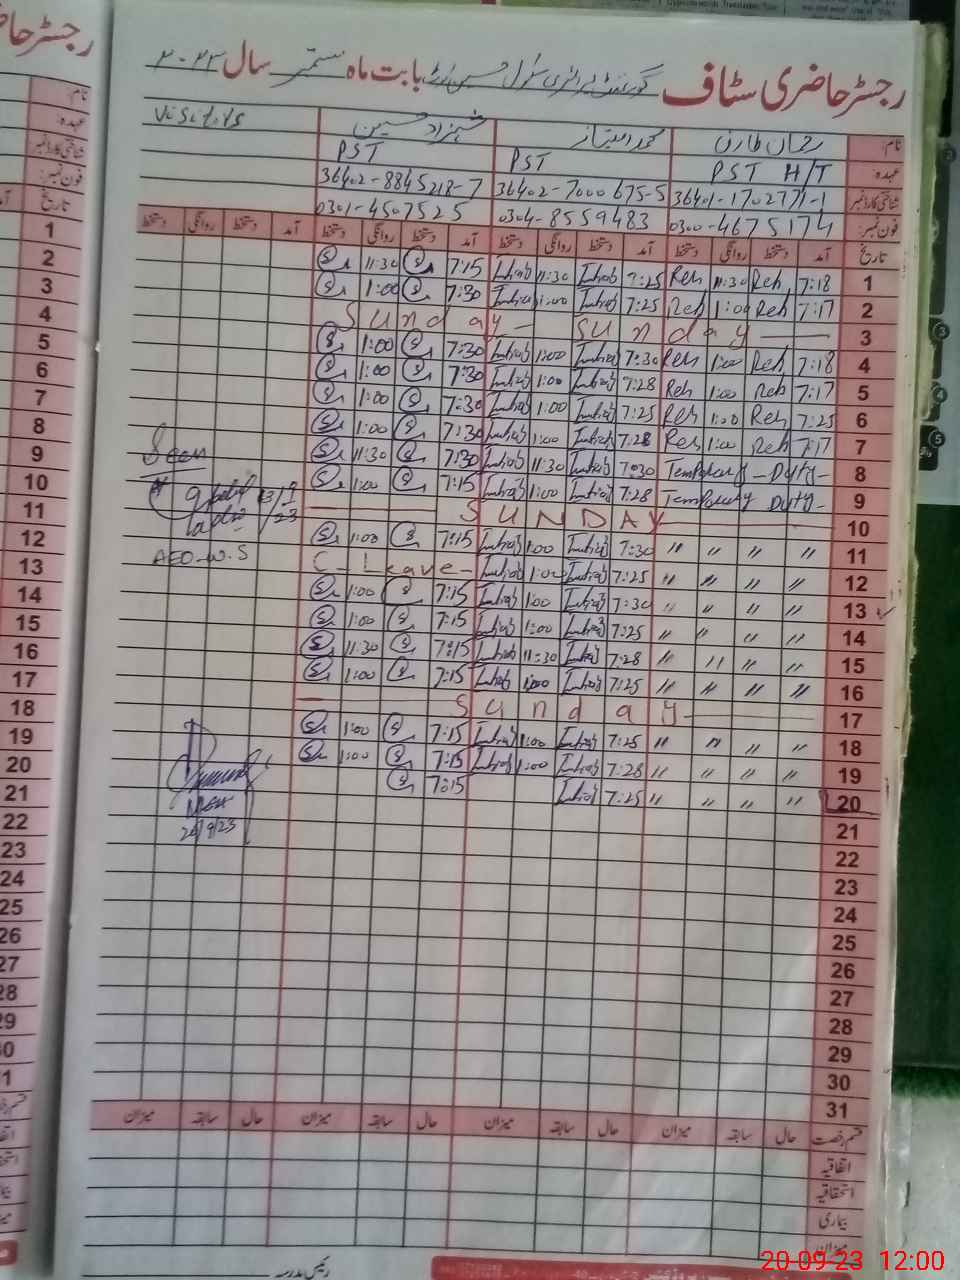 رجسٹر حاضری سٹاف گورنمنٹ پرائمری سکول بابت ماہ ستمبر سال ۲۰۲۳
نام: رحمان طارق محمد امتیاز شہزاد حسین Visitors
عہدہ: PST H/T PST PST
شناختی کارڈ نمبر 36401-1702771-1 36402-7000675-5 36402-8845218-7
فون نمبر: 0300-4675174 0304-8559483 0301-4507525
تاریخ آمد دستخط روانگی دستخط آمد دستخط روانگی دستخط آمد دستخط روانگی دستخط آمد دستخط روانگی دستخط
1 7:18 Reh 11:30 Reh 7:25 Imtiaz 11:30 Imtiaz 7:15 11:30
2 7:17 Reh 1:00 Reh 7:25 Imtiaz 1:00 Imtiaz 7:30 1:00
3 Sunday Sunday
4 7:18 Reh 1:00 Reh 7:30 Imtiaz 1:00 Imtiaz 7:30 1:00
5 7:17 Reh 1:00 Reh 7:28 Imtiaz 1:00 Imtiaz 7:30 1:00
6 7:25 Reh 1:00 Reh 7:25 Imtiaz 1:00 Imtiaz 7:30 1:00
7 7:17 Reh 1:00 Reh 7:28 Imtiaz 1:00 Imtiaz 7:30 1:00
8 Temporary - Duty - 7:30 Imtiaz 11:30 Imtiaz 7:30 11:30 Seen
9 Temporary Duty - 7:28 Imtiaz 1:00 Imtiaz 7:15 1:00
10 SUNDAY
11 " " " " 7:30 Imtiaz 1:00 Imtiaz 7:15 1:00
AEO-W.S
12 " " " " 7:25 Imtiaz 1:00 Imtiaz C-Leave-
13 " " " " 7:30 Imtiaz 1:00 Imtiaz 7:15 1:00
14 " " " " 7:25 Imtiaz 1:00 Imtiaz 7:15 1:00
15 " " " " 7:28 Imtiaz 11:30 Imtiaz 7:15 11:30
16 " " " " 7:25 Imtiaz 1:00 Imtiaz 7:15 1:00
17 Sunday
18 " " " " 7:25 Imtiaz 1:00 Imtiaz 7:15 1:00
19 " " " " 7:28 Imtiaz 1:00 Imtiaz 7:15 1:00
20 " " " " 7:25 Imtiaz 7:15
20/9/23
21
22
23
24
25
26
27
28
29
30
31
قسم رخصت حال سابقہ میزان حال سابقہ میزان حال سابقہ میزان حال سابقہ میزان
اتفاقیہ
استحقاقیہ
بیماری
میزان
رئیس مدرسہ
20-09-23 12:00
رجسٹر حا
نام:
عہدہ:
شناختی کارڈ نمبر
فون نمبر:
تاریخ
1
2
3
4
5
6
7
8
9
10
11
12
13
14
15
16
17
18
19
20
21
22
23
24
25
26
27
28
29